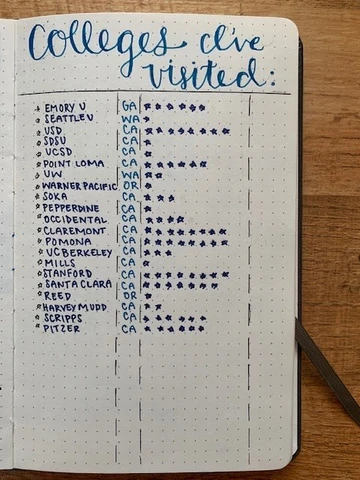 Colleges I've
visited:
EMORY U GA
SEATTLE U WA
USD CA
SDSU CA
UCSD CA
POINT LOMA CA
UW WA
WARNER PACIFIC OR
SOKA CA
PEPPERDINE CA
OCCIDENTAL CA
CLAREMONT CA
POMONA CA
UC BERKELEY CA
MILLS CA
STANFORD CA
SANTA CLARA CA
REED OR
HARVEY MUDD CA
SCRIPPS CA
PITZER CA